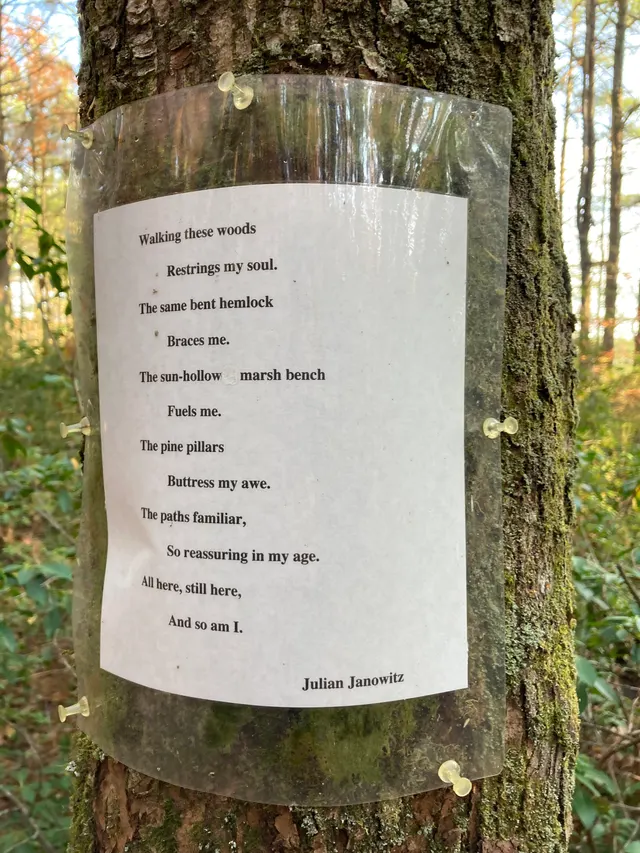 Walking these woods
Restrings my soul.
The same bent hemlock
Braces me.
The sun-hollow marsh bench
Fuels me.
The pine pillars
Buttress my awe.
The paths familiar,
So reassuring in my age.
All here, still here,
And so am I.
Julian Janowitz